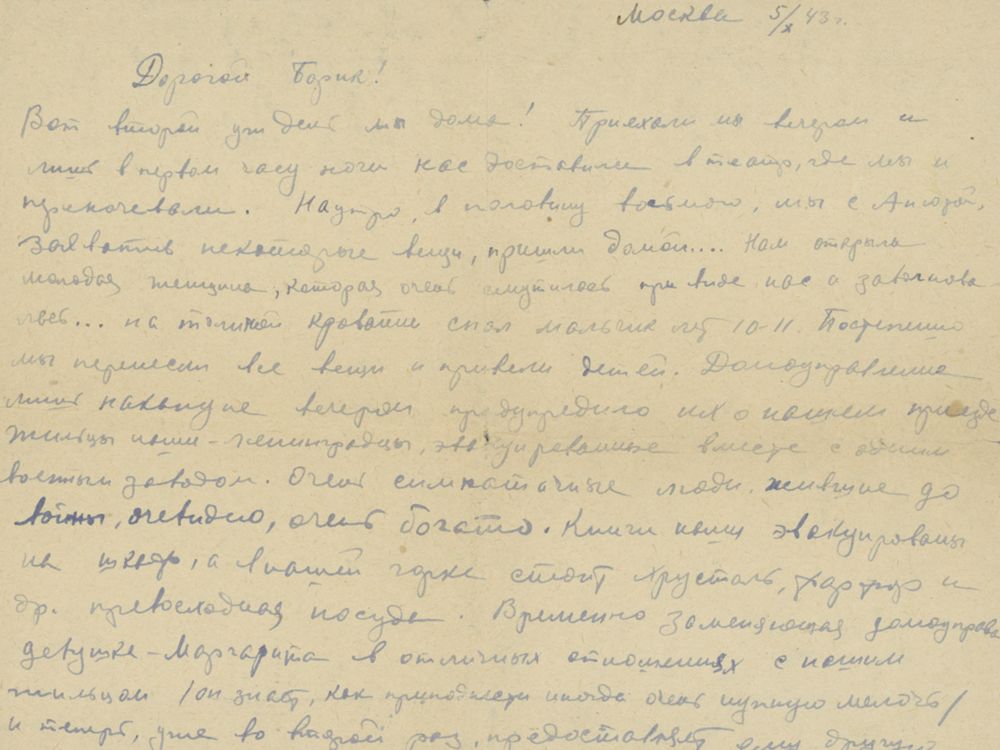 Москва 5/X 43 г.
Дорогой Борик!
Вот второй уж день мы дома! Приехали мы вечером и
лишь в первом часу ночи нас доставили в театр, где мы и
переночевали. Наутро, в половину восьмого, мы с Анютой,
захватив некоторые вещи, пришли домой.... Нам открыла
молодая женщина, которая очень смутилась при виде нас и заволнова-
лась... на кровати спал мальчик лет 10-11. Постепенно
мы перенесли все вещи и привели детей. Домоуправление
лишь накануне вечером предупредило их о нашем приезде
Жильцы наши - ленинградцы, эвакуированные вместе с одним
военным заводом. Очень симпатичные люди, жившие до
войны, очевидно, очень богато. Книги наши эвакуированы
на шкаф, а в нашей горке стоит хрусталь, фарфор и
др. превосходная посуда. Временно заменяющая домоуправа
девушка - Маргарита в отличных отношениях с нашим
жильцом /он знает, как преподнести иногда очень нужную мелочь/
и теперь, уже во второй раз, предоставляет ему другую